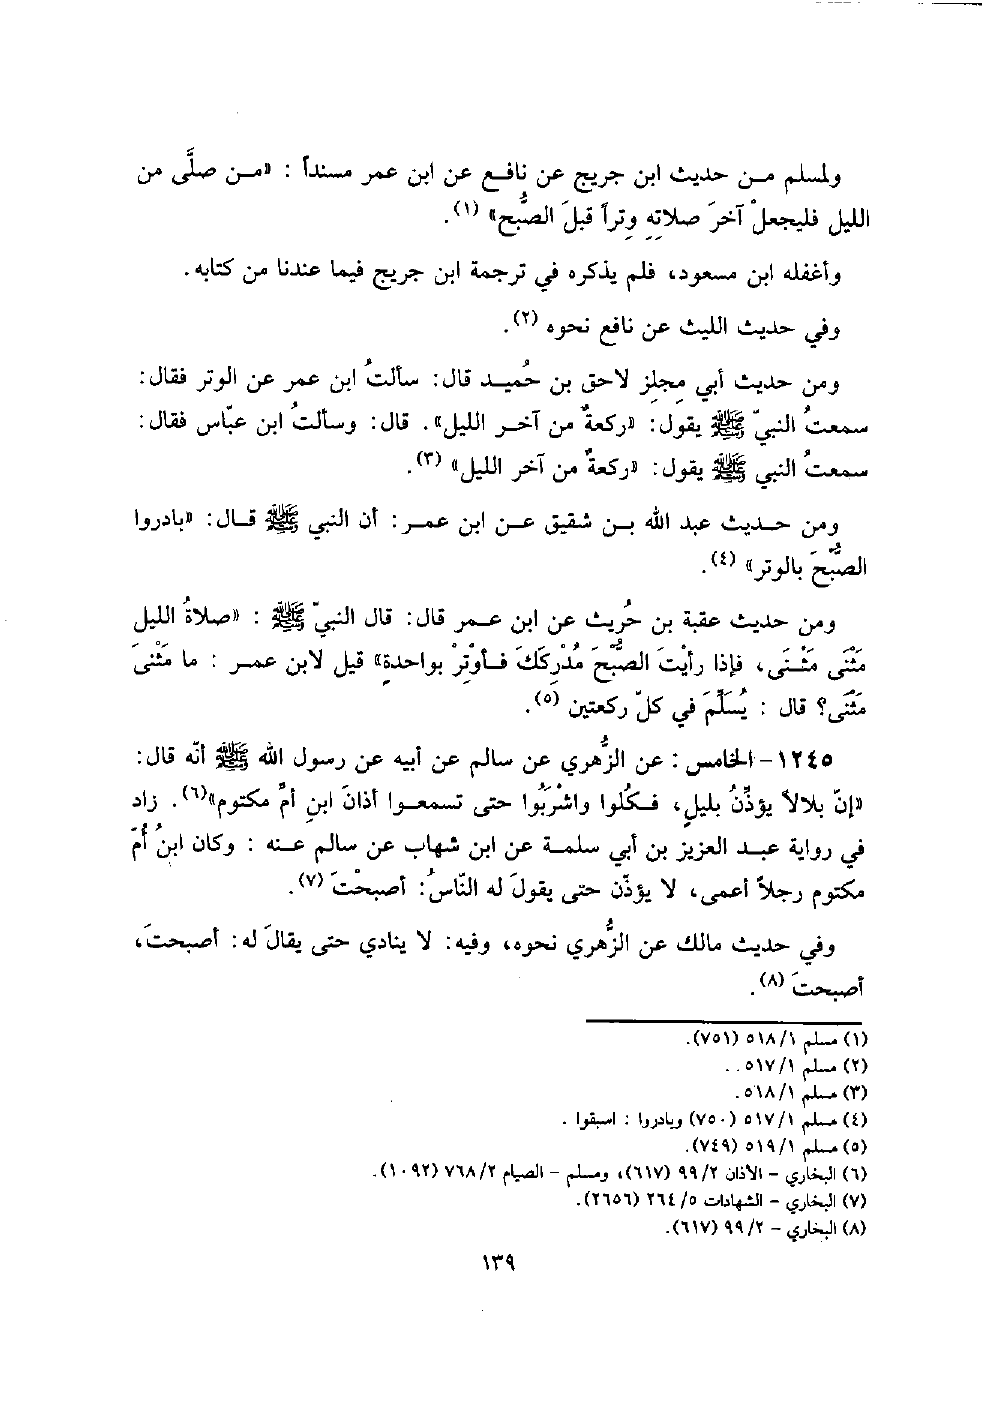 ولمسلم مـن حديث ابن جريج عن نافـع عن ابن عمر مسنداً : «مـن صلَّى من
الليل فليجعلْ آخرَ صلاتِهِ وِتراً قبلَ الصُّبح» (١).
وأغفله ابن مسعود، فلم يذكره في ترجمة ابن جريج فيما عندنا من كتابه.
وفي حديث الليث عن نافع نحوه (٢).
ومن حديث أبي مِجلِز لاحق بن حُميـد قال: سألتُ ابن عمر عن الوتر فقال:
سمعتُ النبيّ ﷺ يقول: «ركعةٌ من آخـر الليل». قال: وسألتُ ابن عبّاس فقال:
سمعتُ النبي ﷺ يقول: «ركعةٌ من آخر الليل» (٣).
ومن حـديث عبد الله بـن شقيق عـن ابن عمـر: أن النبي ﷺ قـال: «بادروا
الصُّبْحَ بالوتر» (٤).
ومن حديث عقبة بن حُريث عن ابن عـمر قال: قال النبيّ ﷺ : «صلاةُ الليل
مَثْنَى مَثْـنَى، فإذا رأيْتَ الصُّبْحَ مُدْرِكَكَ فـأوْتِرْ بواحدةٍ» قيل لابن عمـر : ما مَثْنَىَ
مَثْنَى؟ قال : يُسَلِّمَ في كلّ ركعتين (٥).
١٢٤٥- الخامس : عن الزُّهري عن سالم عن أبيه عن رسول الله ﷺ أنّه قال:
«إنّ بلالاً يؤذِّنُ بليلٍ، فـكُلوا واشْرَبُوا حتى تسمعـوا أذانَ ابنِ أمِّ مكتوم»(٦). زاد
في رواية عبـد العزيز بن أبي سلمـة عن ابن شهاب عن سالم عـنه : وكان ابنُ أُمّ
مكتوم رجلاً أعمى، لا يؤذّن حتى يقولَ له النّاسُ: أصبحْتَ (٧).
وفي حديث مالك عن الزُّهري نحوه، وفيه: لا ينادي حتى يقالَ له: أصبحتَ،
أصبحتَ (٨).
(١) مسلم ٥١٨/١ (٧٥١).
(٢) مسلم ٥١٧/١ . .
(٣) مسلم ٥١٨/١.
(٤) مسلم ٥١٧/١ (٧٥٠) وبادروا : اسبقوا .
(٥) مسلم ٥١٩/١ (٧٤٩).
(٦) البخاري - الأذان ٩٩/٢ (٦١٧)، ومسلم - الصيام ٧٦٨/٢ (١٠٩٢).
(٧) البخاري - الشهادات ٢٦٤/٥ (٢٦٥٦).
(٨) البخاري - ٩٩/٢ (٦١٧).
١٣٩